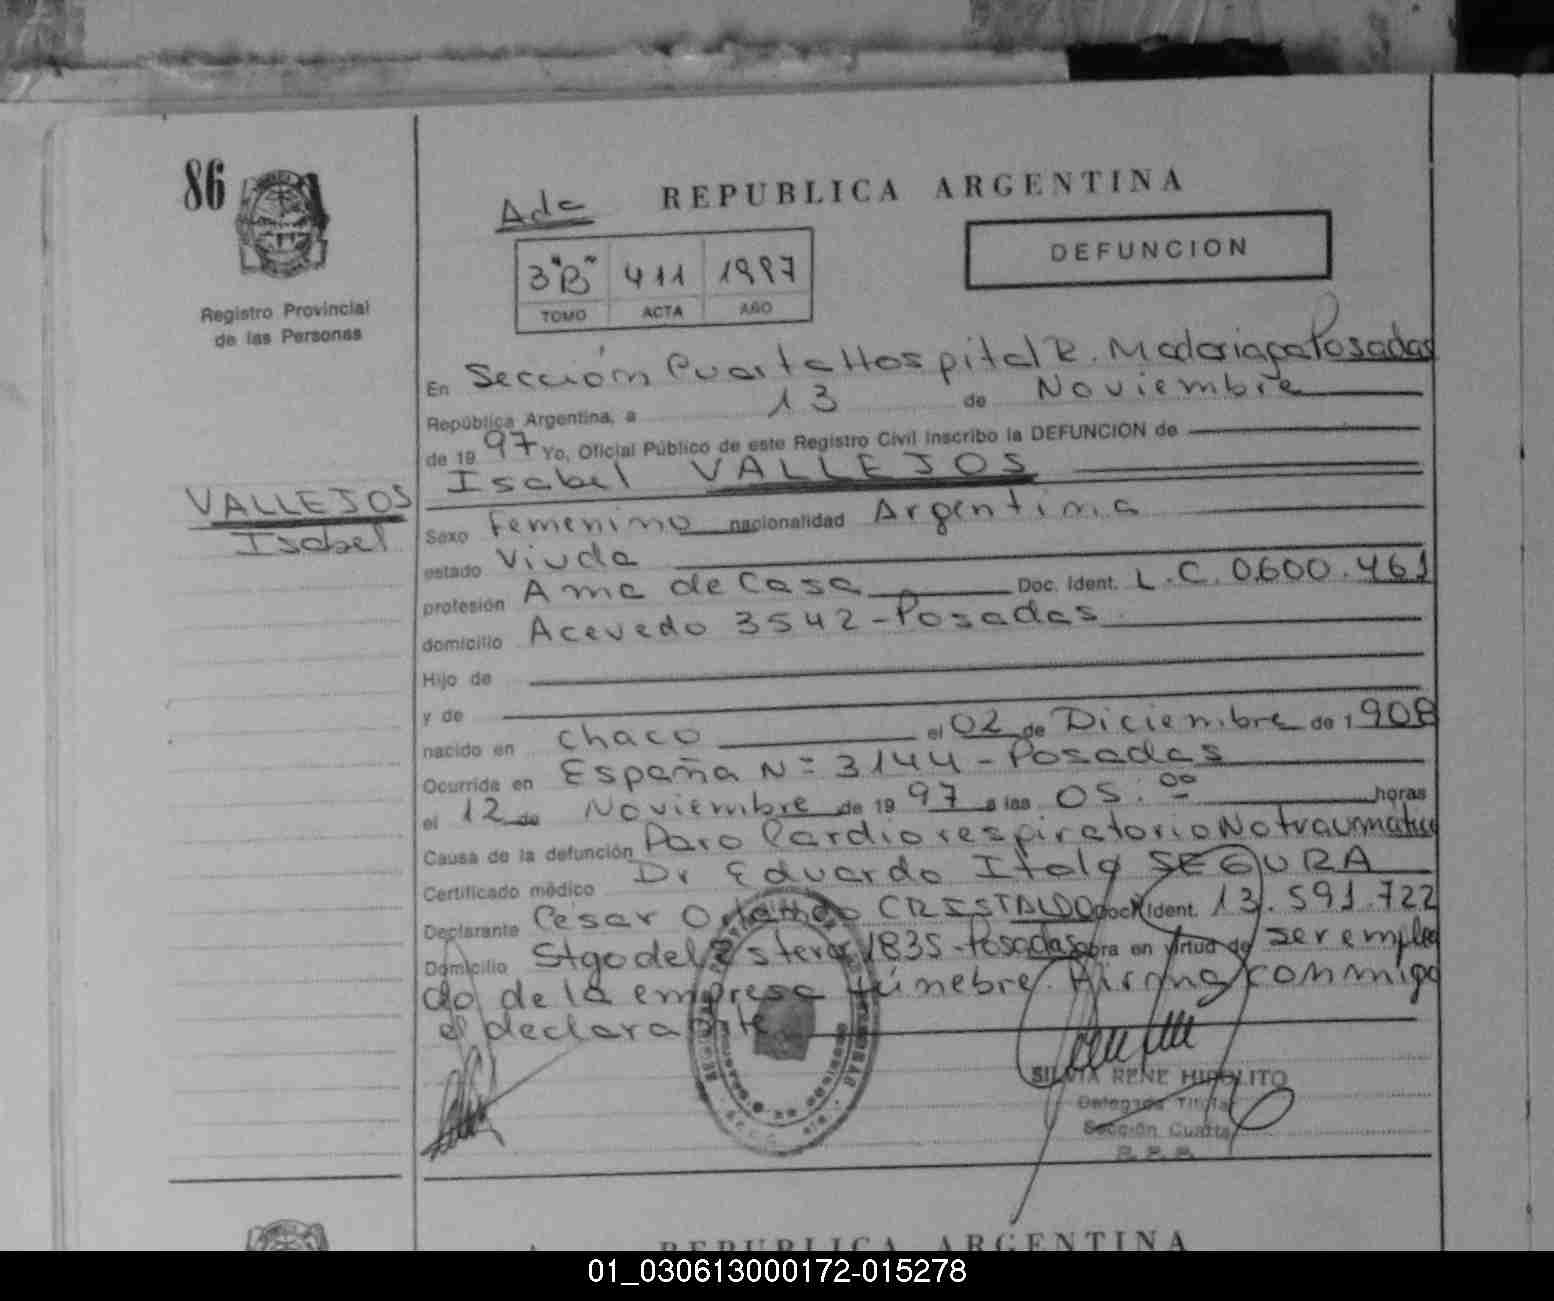 86
REPUBLICA ARGENTINA
3"B" 411 1997
TOMO ACTA AÑO
DEFUNCION
Registro Provincial
de las Personas
En Sección Cuarta Hospital R. Madariaga Posadas
República Argentina, a 13 de Noviembre
de 19 97 Yo, Oficial Público de este Registro Civil inscribo la DEFUNCION de
Isabel VALLEJOS
VALLEJOS
Isabel
Sexo femenino nacionalidad Argentina
estado Viuda
profesión Ama de Casa Doc. Ident. L.C. 0.600.461
domicilio Acevedo 3542-Posadas.
Hijo de
y de
nacido en Chaco el 02 de Diciembre de 1908
Ocurrida en España N= 3144-Posadas
el 12 de Noviembre de 1997 a las 05:00 horas
Causa de la defunción Paro Cardiorespiratorio No traumatico
Certificado médico Dr Eduardo Italo SEGURA
Declarante Cesar CRISTALDO Doc. Ident. 13.591.722
Domicilio Stgo del Estero 1835-Posadas obra en virtud de ser emplea
do de la empresa fúnebre. Firma conmigo
el declarante
SILVIA RENE HIPOLITO
Delegada Titular
Sección Cuarta
REPUBLICA ARGENTINA
01_030613000172-015278